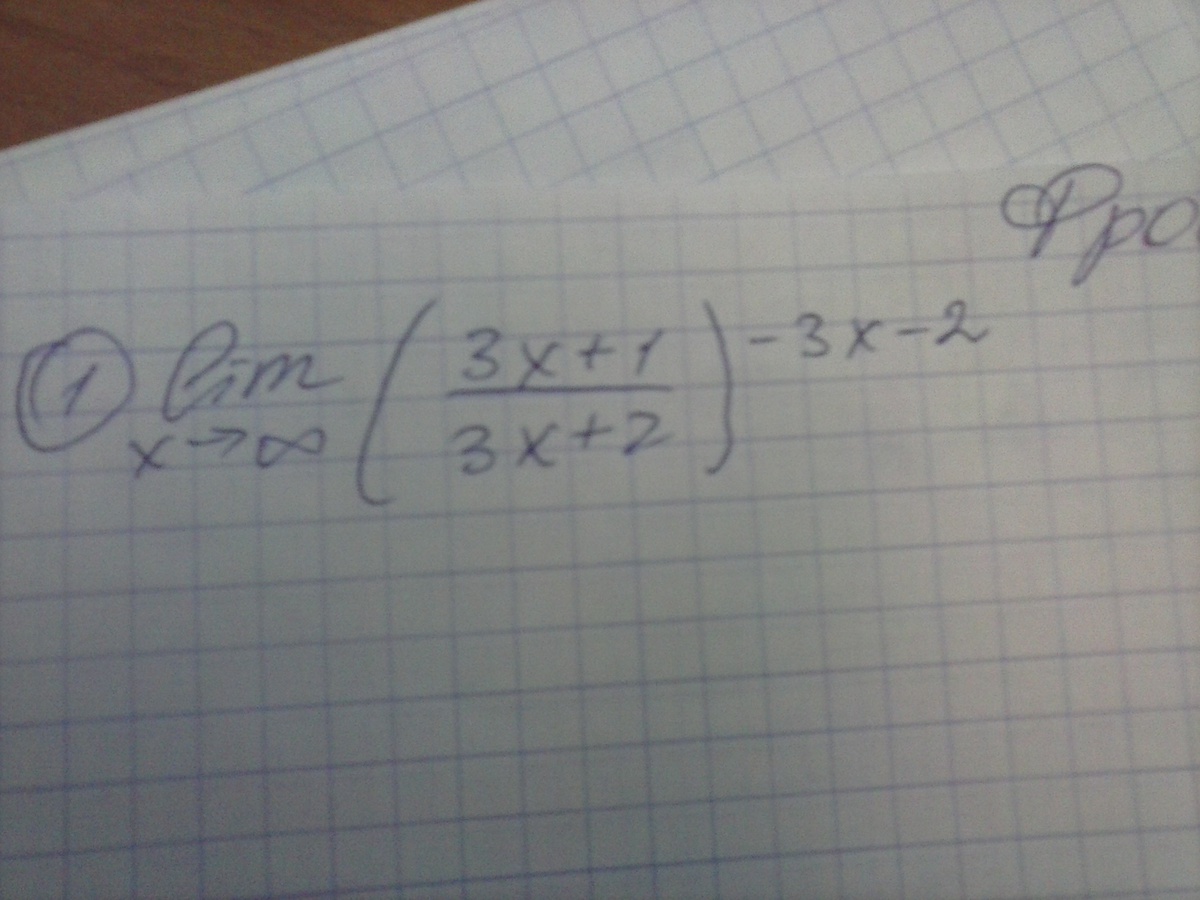 Фро
① lim x→∞ (3x+1 / 3x+2)^-3x-2